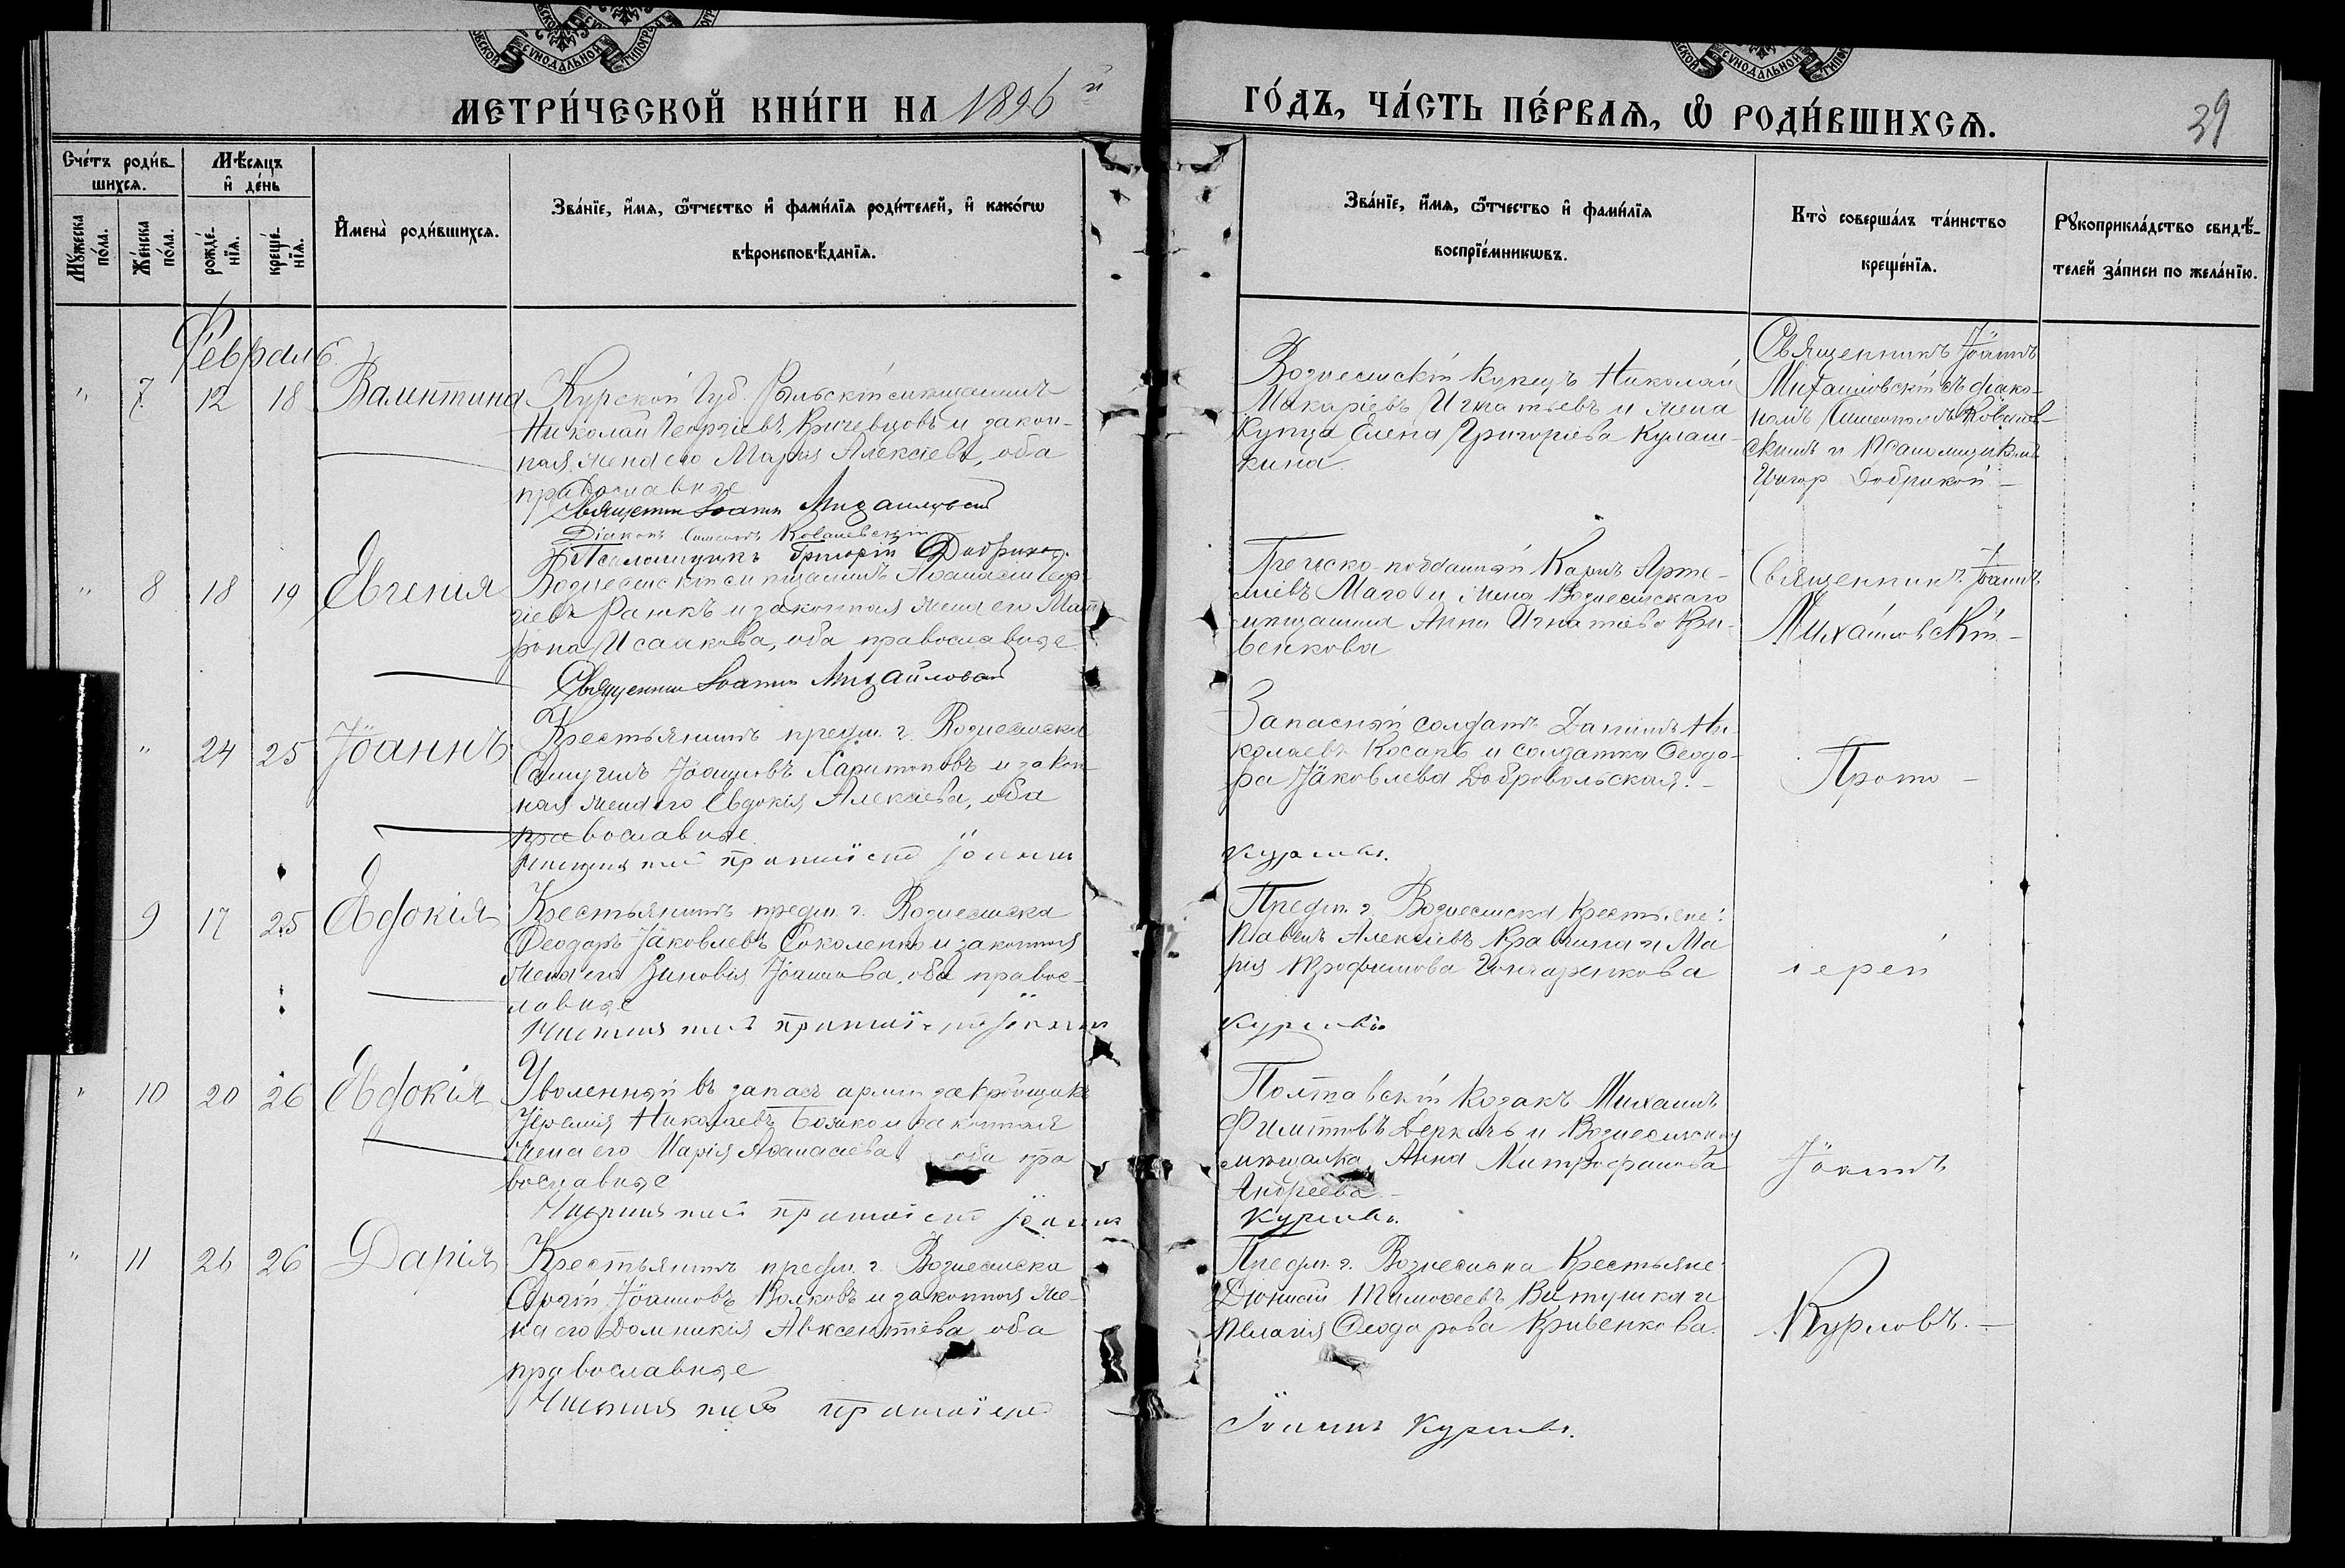 МЕТРИ́ЧЕСКОЙ КНИ́ГИ НА 1896 й
ГО́ДЪ, ЧА́СТЬ ПЕ́РВАѦ, Ѡ РОДИ́ВШИХСѦ.
39
Сче́тъ роди́в-
шихсѧ.
Мѣ́сѧцъ
и҆ де́нь
Мꙋ́жеска
по́ла.
Же́нска
по́ла.
рожде́-
нїѧ.
креще́-
нїѧ.
И҆мена̀ роди́вшихсѧ.
Зва́нїе, и҆́мѧ, ѻ҆́тчество и҆ фами́лїѧ роди́телей, и҆ како́гѡ
вѣроисповѣ́данїѧ.
Зва́нїе, и҆́мѧ, ѻ҆́тчество и҆ фами́лїѧ
воспрїе́мникѡвъ.
Кто̀ соверша́лъ та́инство
креще́нїѧ.
Рꙋкоприкла́дство свидѣ́-
телей за́писи по жела́нїю.
Февраль
" 7 12 18 Валентина
Курской Губ. Рыльскій мѣщанинъ
Николай Георгіевъ Кричевцовъ и закон-
ная жена его Марія Алексіева, оба
православные
Священникъ Іоаннъ Михаиловскій
Діаконъ Ковалевскій
Псаломщикъ Григорій Добрикой
Вознесенскій купецъ Николай
Макаріевъ Игнатьевъ и жена
купца Елена Григоріева Кулаш-
кина
Священникъ Іоаннъ
Михаиловскій съ діако-
номъ Ковалев-
скимъ и Псаломщикомъ
Григор Добрикой
" 8 18 19 Евгенія
Вознесенскій мѣщанинъ Аѳанасій Геор-
гіевъ Раткъ и законная жена его Мат-
рона Исаакова, оба православные
Священникъ Іоаннъ Михайловскій
Греческо-подданный Карпъ Арте-
міевъ Маго и жена Вознесенскаго
мѣщанина Анна Игнатіева Кри-
венкова
Священникъ Іоаннъ
Михаиловскій
" 24 25 Іоаннъ
Крестьянинъ предм. г. Вознесенска
Самуилъ Іоанновъ Харитоновъ и закон-
ная жена его Евдокія Алексіева, оба
православные
протоіерей Іоаннъ
Курловъ.
Запасный солдатъ Даніилъ Ни-
колаевъ Косарь и солдатка Ѳеодо-
ра Іаковлева Добровольская.
Прото-
9 17 25 Евдокія
Крестьянинъ предм. г. Вознесенска
Ѳеодоръ Іаковлевъ Соколенко и законная
жена его Зиновія Іоаннова, оба правос-
лавные
протоіерей Іоаннъ
Курловъ
Предм. г. Вознесенска крестьяне:
Павелъ Алексіевъ Кравчина и Ма
рія Трофимова Гончаренкова
іерей
" 10 20 26 Евдокія
Уволенный въ запасъ арміи закройщикъ
Іеремія Николаевъ Бояко и законная
жена его Марія Аѳанасіева оба пра
вославные
протоіерей Іоаннъ
Курловъ.
Полтавскій козакъ Михаилъ
Филипповъ Деркачъ и Вознесенская
мѣщанка Анна Митрофанова
Андреева
Іоаннъ
" 11 26 26 Дарія
Крестьянинъ предм. г. Вознесенска
Сергій Іоанновъ Волковъ и законная же-
на его Домникія Авксентіева оба
православные
протоіерей
Іоаннъ Курловъ.
Предм. г. Вознесенска Крестьяне:
Діонисій Тимоѳеевъ Витушка и
Пелагія Ѳеодорова Кривенкова.
Курловъ.